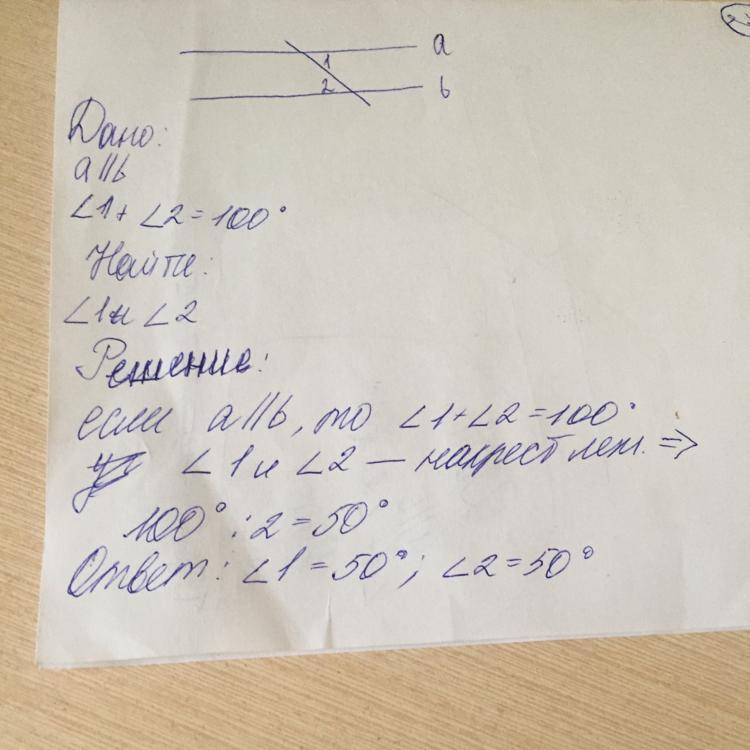 a
1
2
b
Дано:
a || b
∠1 + ∠2 = 100°
Найти:
∠1 и ∠2
Решение:
если a || b, то ∠1 + ∠2 = 100°
∠1 и ∠2 — накрест леж. =>
100° : 2 = 50°
Ответ: ∠1 = 50°; ∠2 = 50°